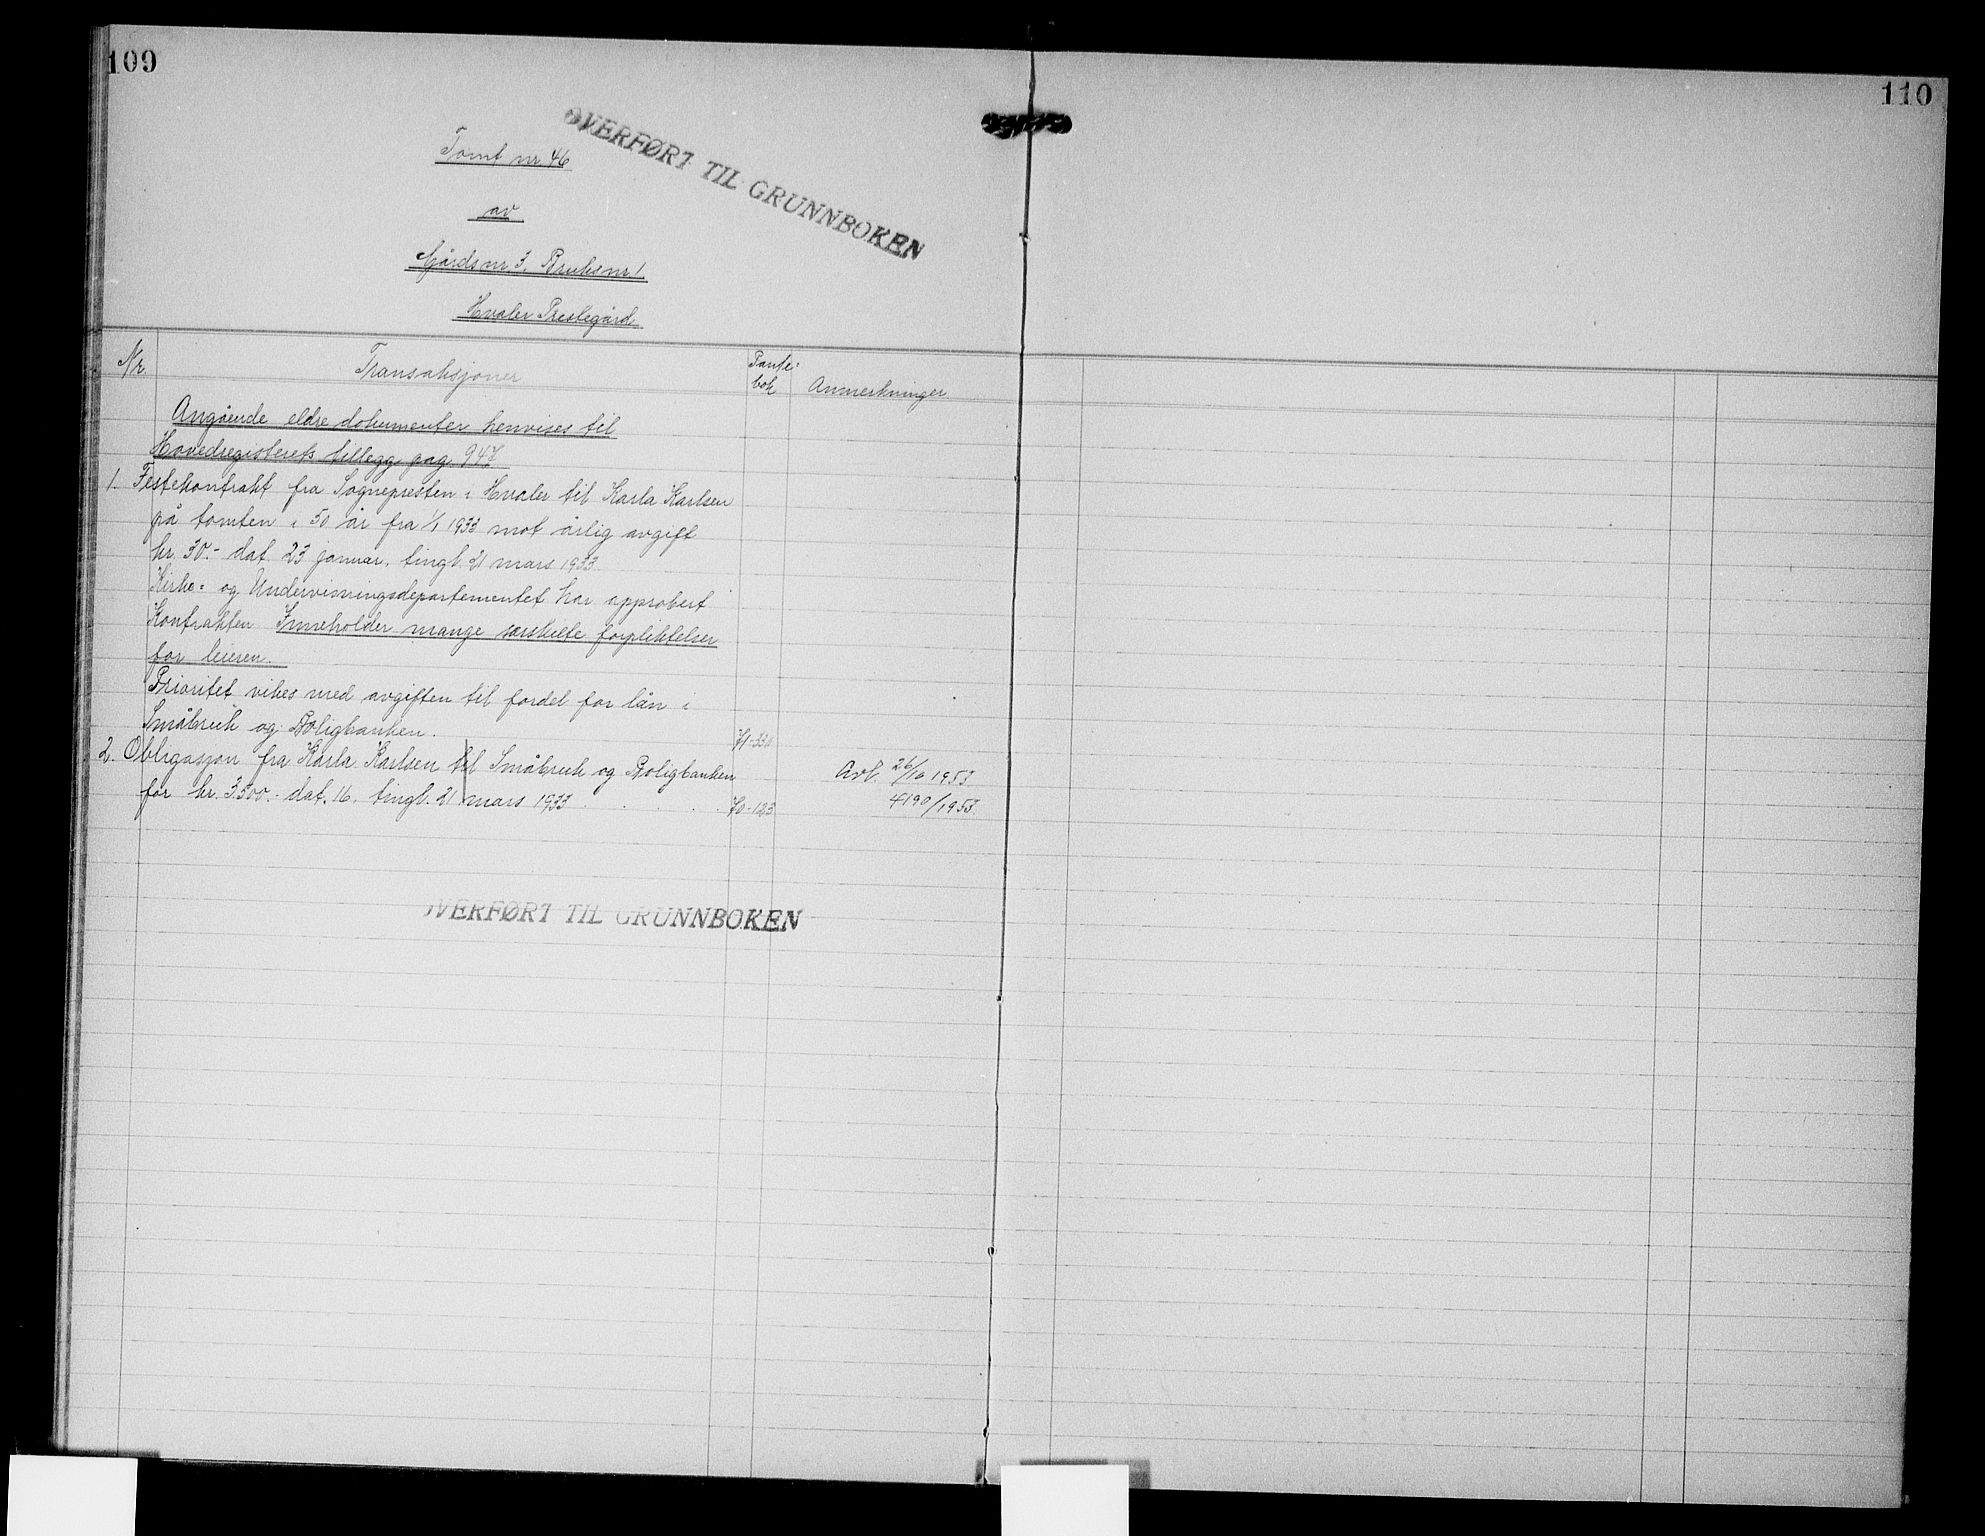 109
110
OVERFØRT TIL GRUNNBOKEN
Tomt nr 46
av
Gårds nr. 3. Bruks nr 1
Hvaler Prestegård
Nr. Transaksjoner Pante- bok Anmerkninger
Angående eldre dokumenter henvises til
Hovedregisterets tillegg pag. 947
1. Festekontrakt fra Sognepresten i Hvaler til Karla Karlsen
på tomten i 50 år fra 1/1 1933 mot årlig avgift
kr. 30.- dat. 23 januar, tingl. 21 mars 1933.
Kirke- og Undervisningsdepartementet har approbert
Kontrakten Inneholder mange særskilte forpliktelser
for leieren.
Prioritet vikes med avgiften til fordel for lån i
Småbruk og Boligbanken. 71-330
2. Obligasjon fra Karla Karlsen til Småbruk og Boligbanken Avl. 26/10 1953
for kr. 3300.- dat. 16. tingl. 21 mars 1933 . . . . 70-123 4190/1953.
OVERFØRT TIL GRUNNBOKEN